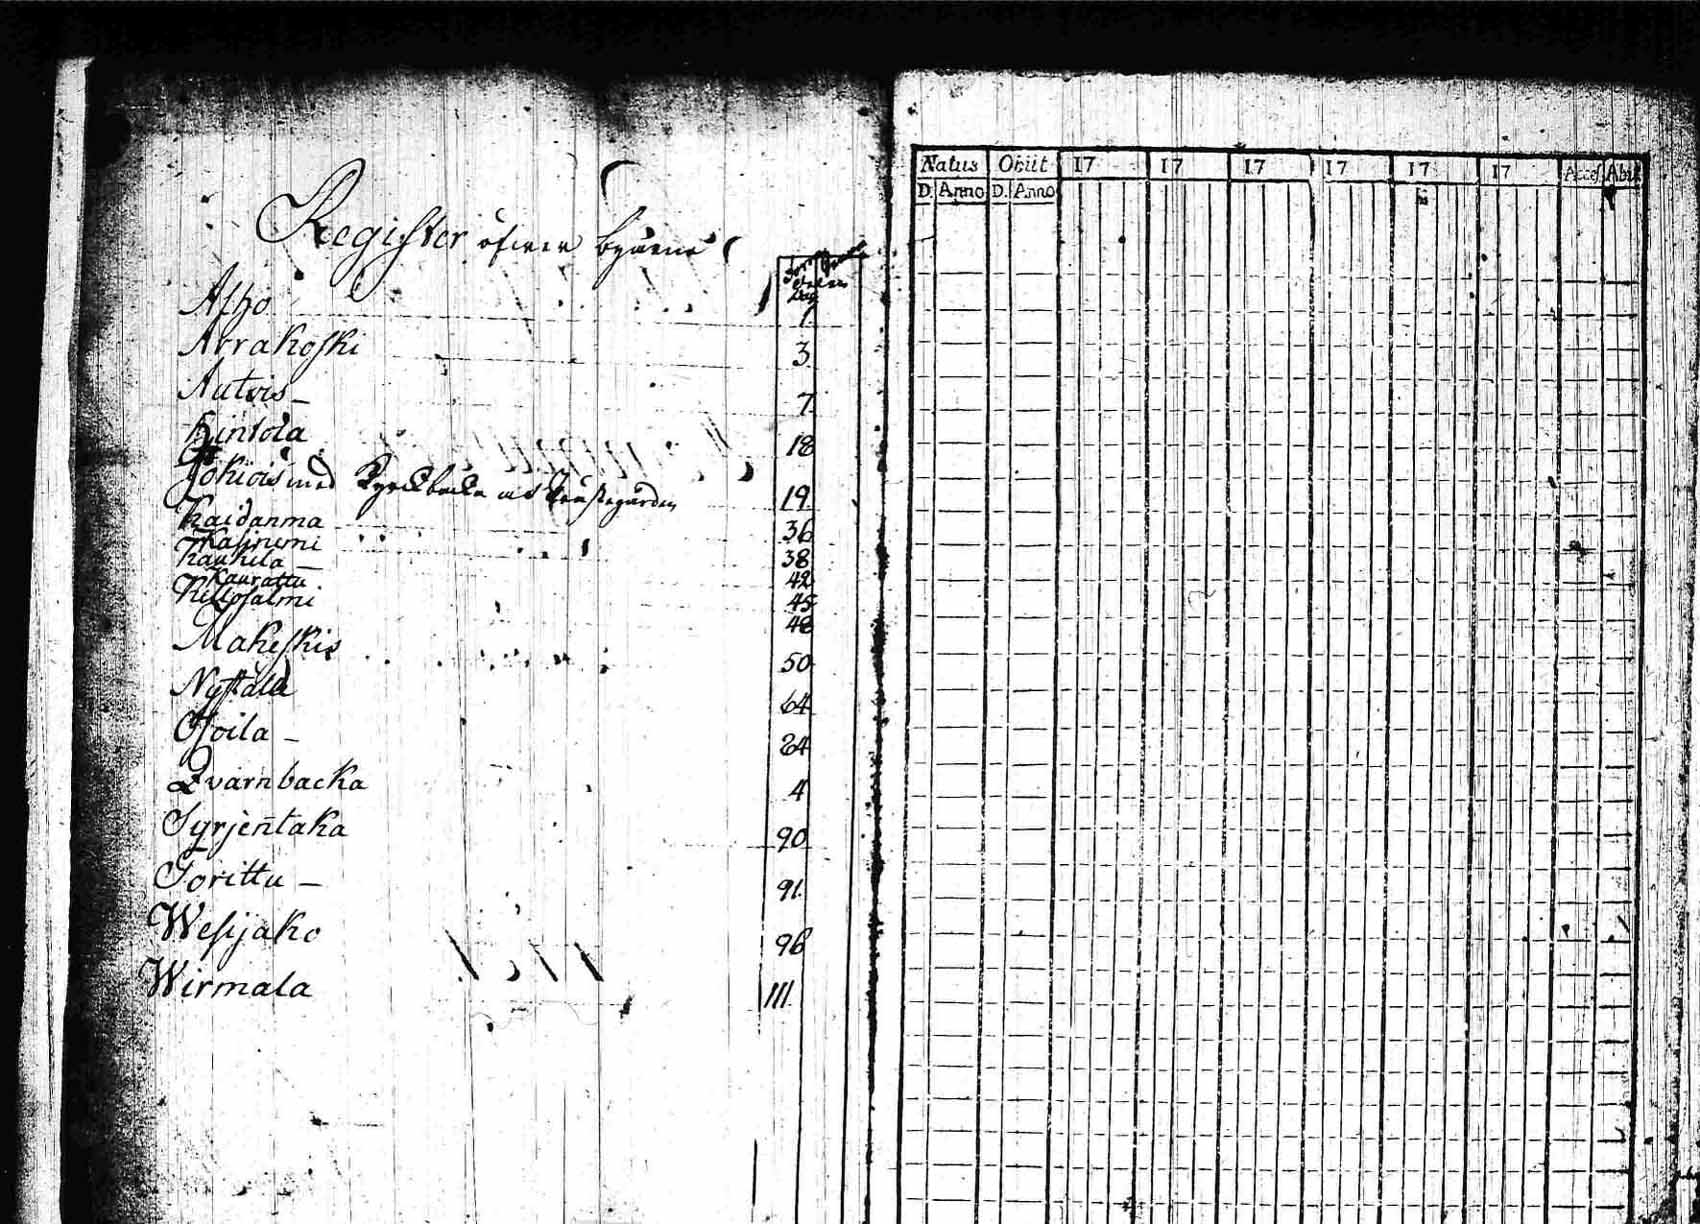 Register öfwer byarne
Alho 1
Arrakoski 3
Autois 7
Hintola 18
Jokiois med Kyrckbacka och Prästegården 19
Kaidanma 36
Kasiniemi 38
Kauhila 42
Kaurattu 45
Kellosalmi 48
Makeskis 50
Nyystälä 64
Osoila 84
Qvarnbacka 4
Syrjentaka 90
Torittu 91
Wesijako 96
Wirmala 111
Natus Obiit 17 17 17 17 17 17 Acces. Abit
D. Anno D. Anno